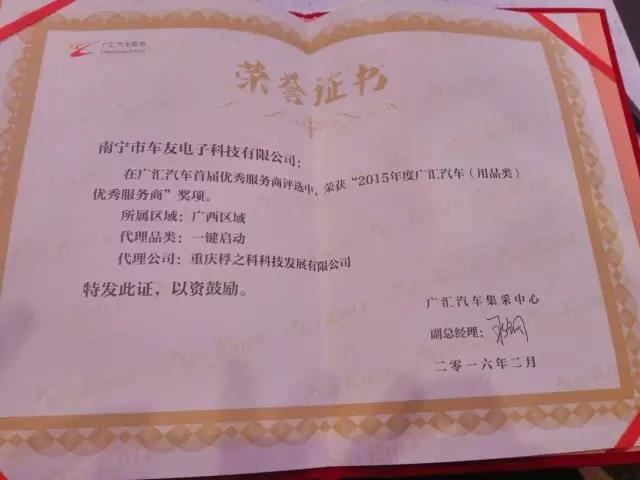 广汇汽车服务
荣誉证书
南宁市车友电子科技有限公司：
在广汇汽车首届优秀服务商评选中，荣获“2015年度广汇汽车（用品类）
优秀服务商”奖项。
所属区域：广西区域
代理品类：一键启动
代理公司：重庆桴之科科技发展有限公司
特发此证，以资鼓励。
广汇汽车集采中心
副总经理：
二零一六年二月